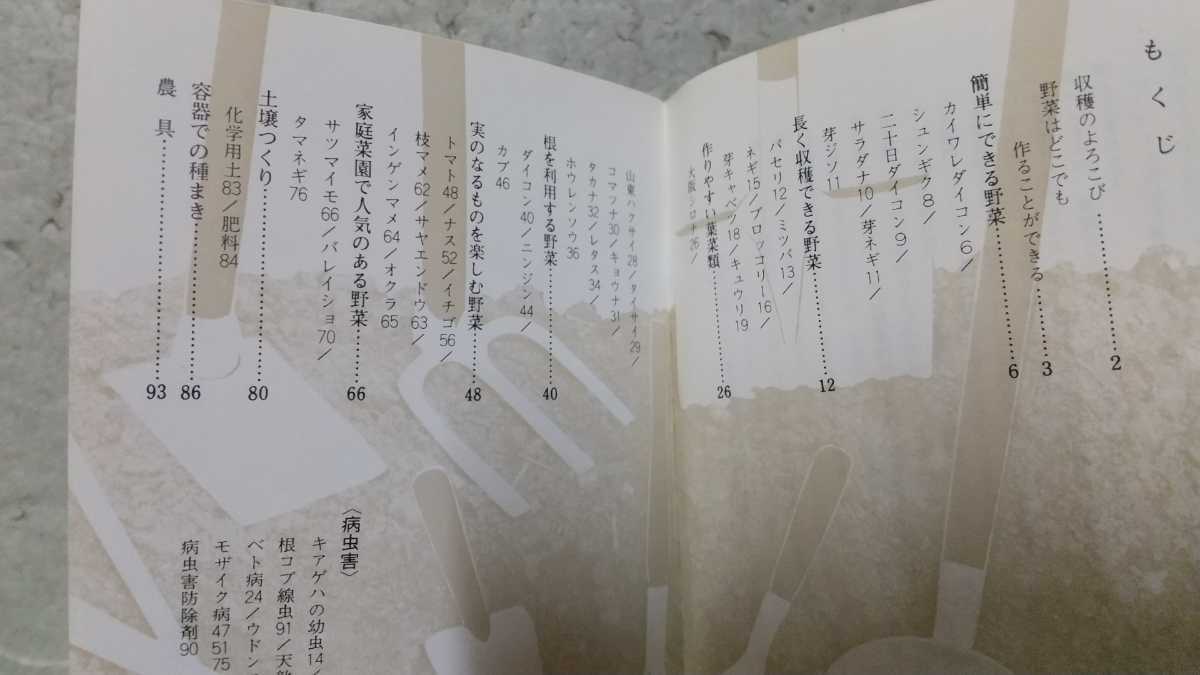 もくじ
収穫のよろこび……………2
野菜はどこでも
作ることができる………3
簡単にできる野菜……………6
カイワレダイコン6/
シュンギク8/
二十日ダイコン9/
サラダナ10/芽ネギ11/
芽ジソ11
長く収穫できる野菜……………12
パセリ12/ミツバ13/
ネギ15/ブロッコリー16/
芽キャベツ18/キュウリ19
作りやすい葉菜類……………26
大阪シロナ26/
山東ハクサイ28/タイサイ29/
コマツナ30/キョウナ31/
タカナ32/レタス34/
ホウレンソウ36
根を利用する野菜……………40
ダイコン40/ニンジン44/
カブ46
実のなるものを楽しむ野菜……48
トマト48/ナス52/イチゴ56/
枝マメ62/サヤエンドウ63/
インゲンマメ64/オクラ65
家庭菜園で人気のある野菜……66
サツマイモ66/バレイショ70/
タマネギ76
土壌つくり……………80
化学用土83/肥料84
容器での種まき……………86
農具……………93
〈病虫害〉
キアゲハの幼虫14/
根コブ線虫91/天
ベト病24/ウドン
モザイク病47 51 75
病虫害防除剤90